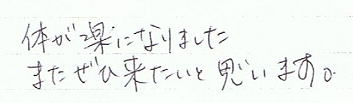 体が楽になりました
またぜひ来たいと思います。